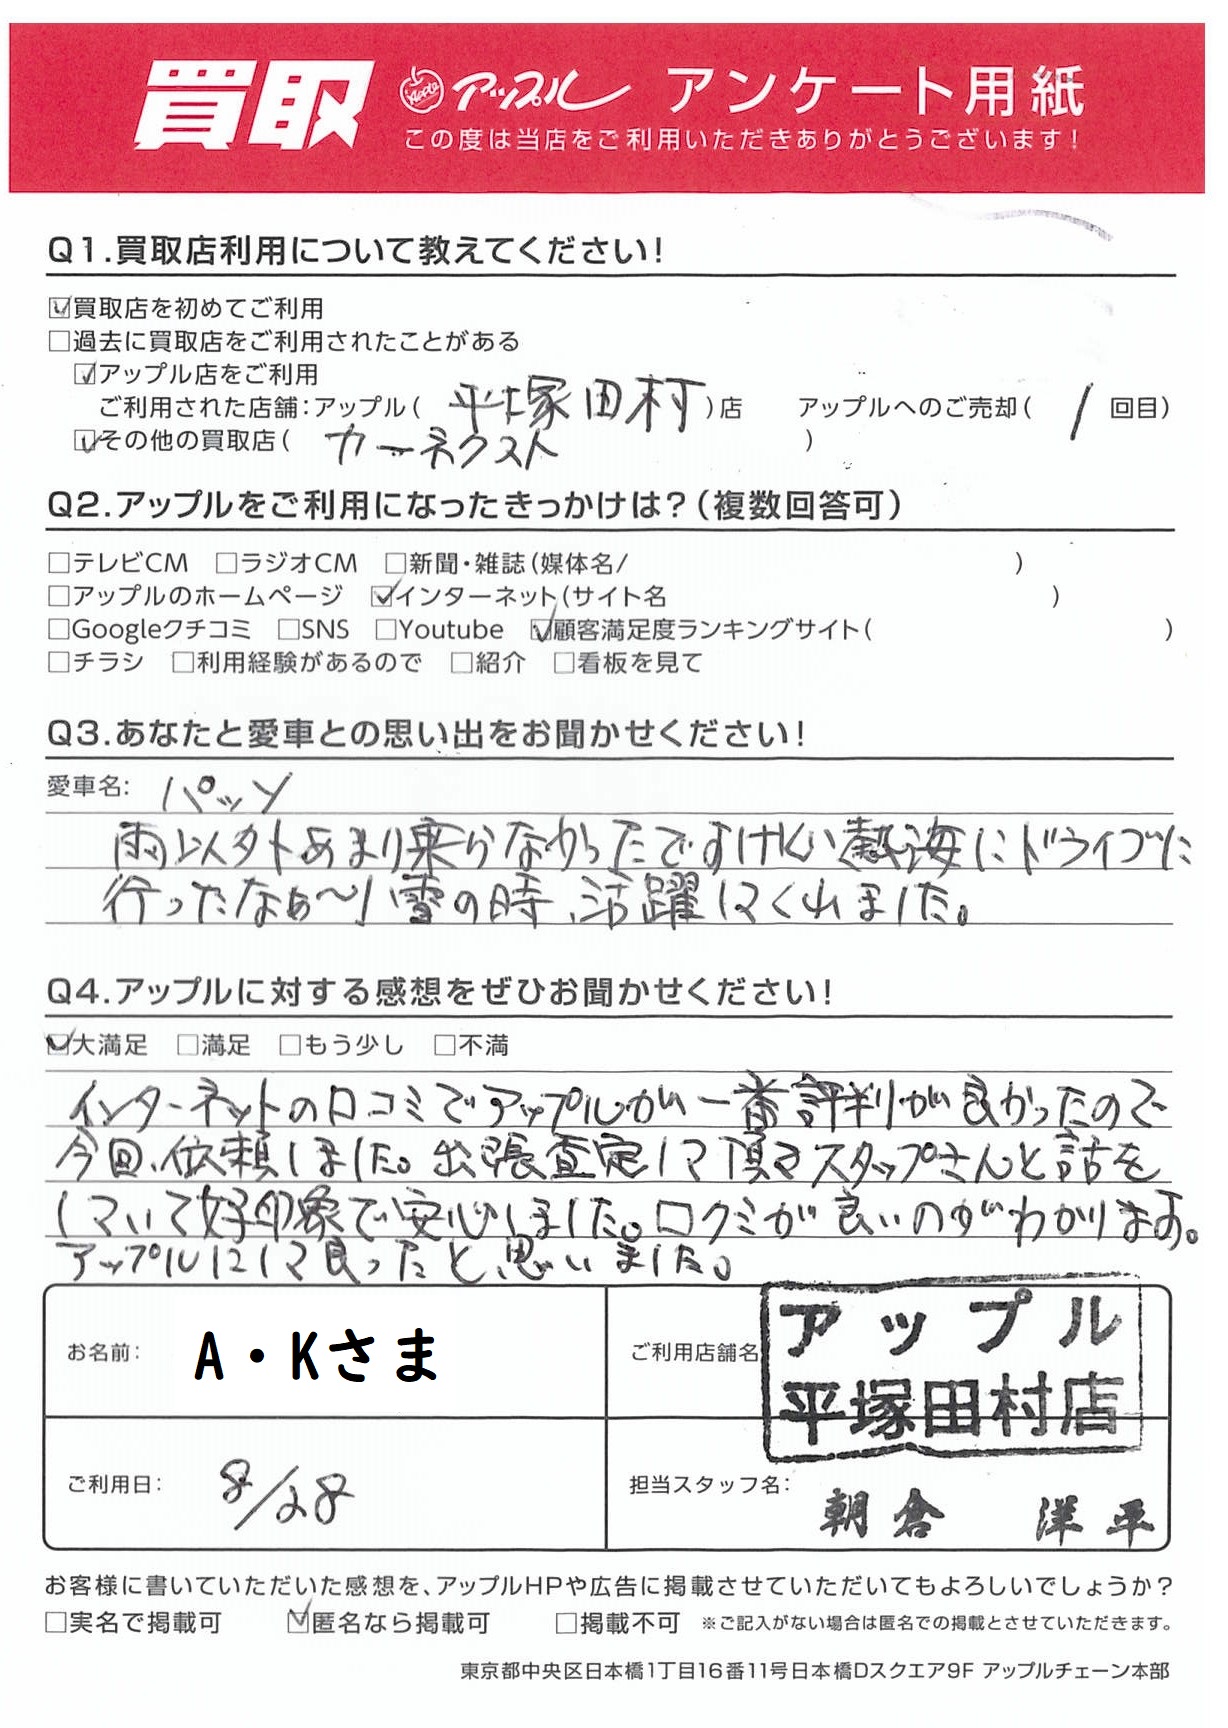 買取 Apple アップル アンケート用紙
この度は当店をご利用いただきありがとうございます!
Q1.買取店利用について教えてください!
☑買取店を初めてご利用
□過去に買取店をご利用されたことがある
☑アップル店をご利用
ご利用された店舗:アップル( 平塚田村 )店 アップルへのご売却( 1 回目)
☑その他の買取店( カーネクスト )
Q2.アップルをご利用になったきっかけは?(複数回答可)
□テレビCM □ラジオCM □新聞・雑誌(媒体名/ )
□アップルのホームページ ☑インターネット(サイト名 )
□Googleクチコミ □SNS □Youtube ☑顧客満足度ランキングサイト( )
□チラシ □利用経験があるので □紹介 □看板を見て
Q3.あなたと愛車との思い出をお聞かせください!
愛車名: パッソ
雨以外あまり乗らなかったですけれど熱海にドライブに
行ったなぁ〜!雪の時、活躍してくれました。
Q4.アップルに対する感想をぜひお聞かせください!
☑大満足 □満足 □もう少し □不満
インターネットの口コミでアップルが一番評判が良かったので
今回、依頼しました。出張査定して頂きスタッフさんと話を
していて好印象で安心しました。口クミが良いのがわかります。
アップルにして良ったと思いました。
お名前: A・Kさま ご利用店舗名 アップル
平塚田村店
ご利用日: 8/28 担当スタッフ名: 朝倉 洋平
お客様に書いていただいた感想を、アップルHPや広告に掲載させていただいてもよろしいでしょうか?
□実名で掲載可 ☑匿名なら掲載可 □掲載不可 ※ご記入がない場合は匿名での掲載とさせていただきます。
東京都中央区日本橋1丁目16番11号日本橋Dスクエア9F アップルチェーン本部